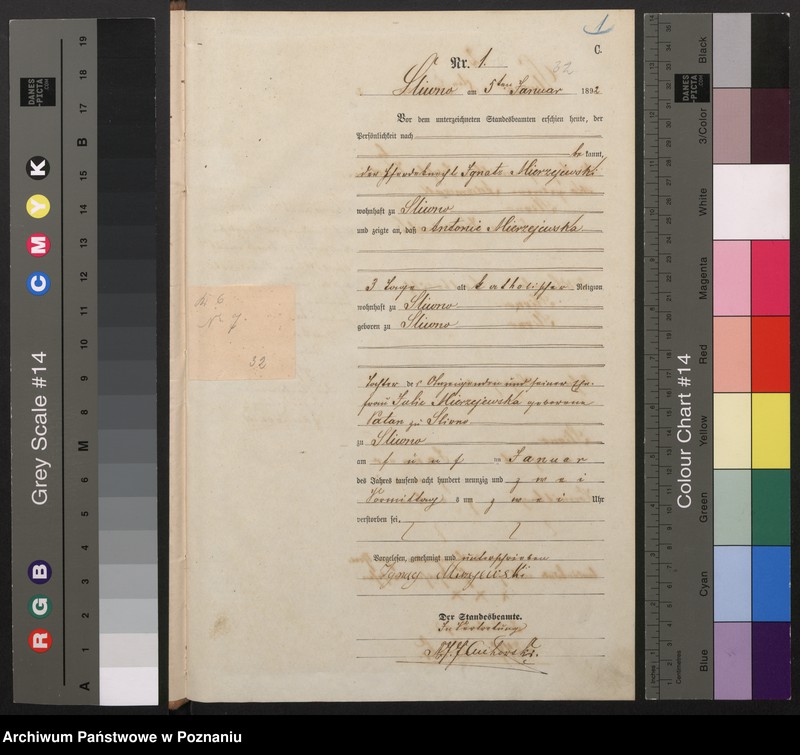 1
C.
Nr. 1.
32
Sliwno am 5ten Januar 1892
Vor dem unterzeichneten Standesbeamten erschien heute, der
Persönlichkeit nach
be kannt,
der Pferdeknecht Ignatz Mierzejewski
wohnhaft zu Sliwno
und zeigte an, daß Antonie Mierzejewska
3 Tage alt katholischer Religion
wohnhaft zu Sliwno
geboren zu Sliwno
Tochter des Anzeigenden und seiner Ehe-
frau Julie Mierzejewska geborene
zu Sliwno
zu Sliwno
am fünf ten Januar
des Jahres tausend acht hundert neunzig und zwei
Vormittags um zwei Uhr
verstorben sei.
Vorgelesen, genehmigt und unterschrieben
Ignacy
Der Standesbeamte.
In Vertretung
N 7.
32
Grey Scale #14
DANES
-PICTA
.COM
C M Y K
R G B
A 1 2 3 4 5 6 M 8 9 10 11 12 13 14 15 B 17 18 19
Colour Chart #14
DANES
-PICTA
.COM
Blue Cyan Green Yellow Red Magenta White 3/Color Black
Inches
Centimetres
Archiwum Państwowe w Poznaniu